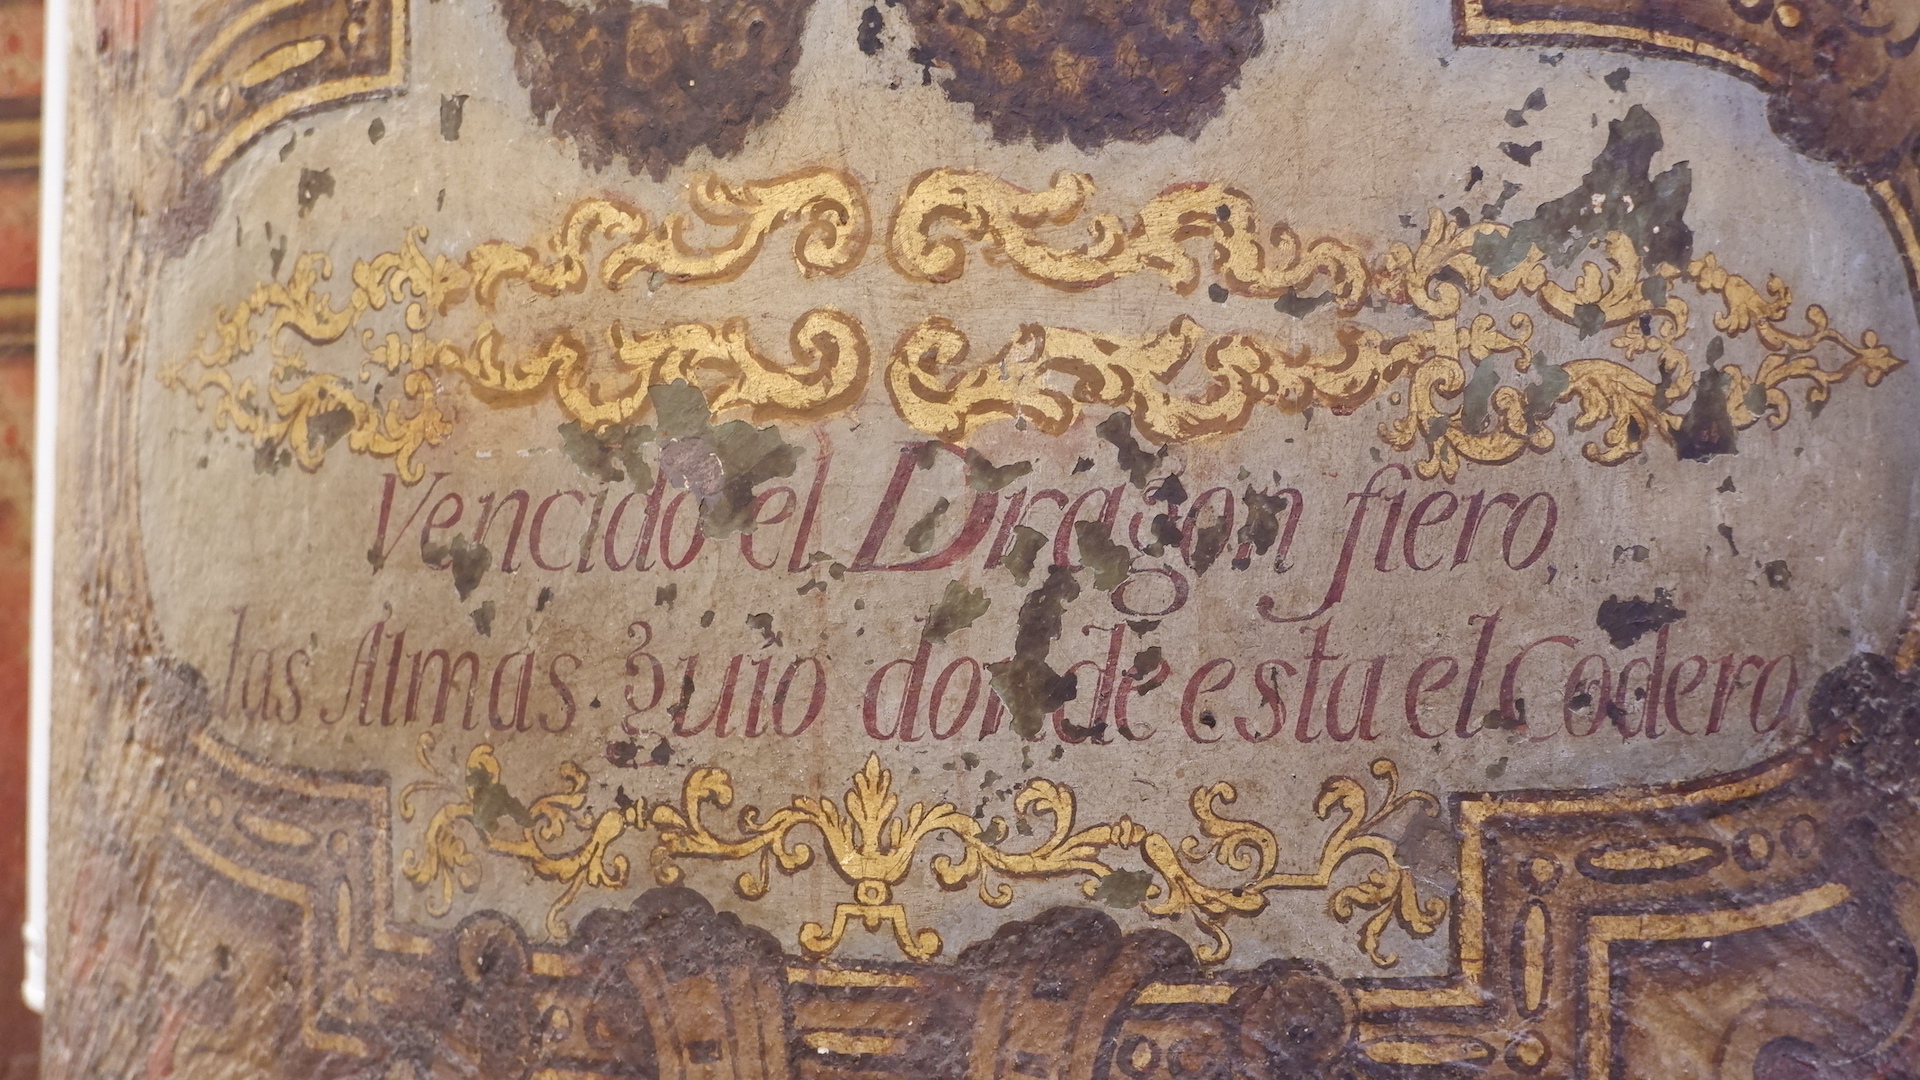 Vencido el Dragon fiero,
las Almas guio donde esta el Codero